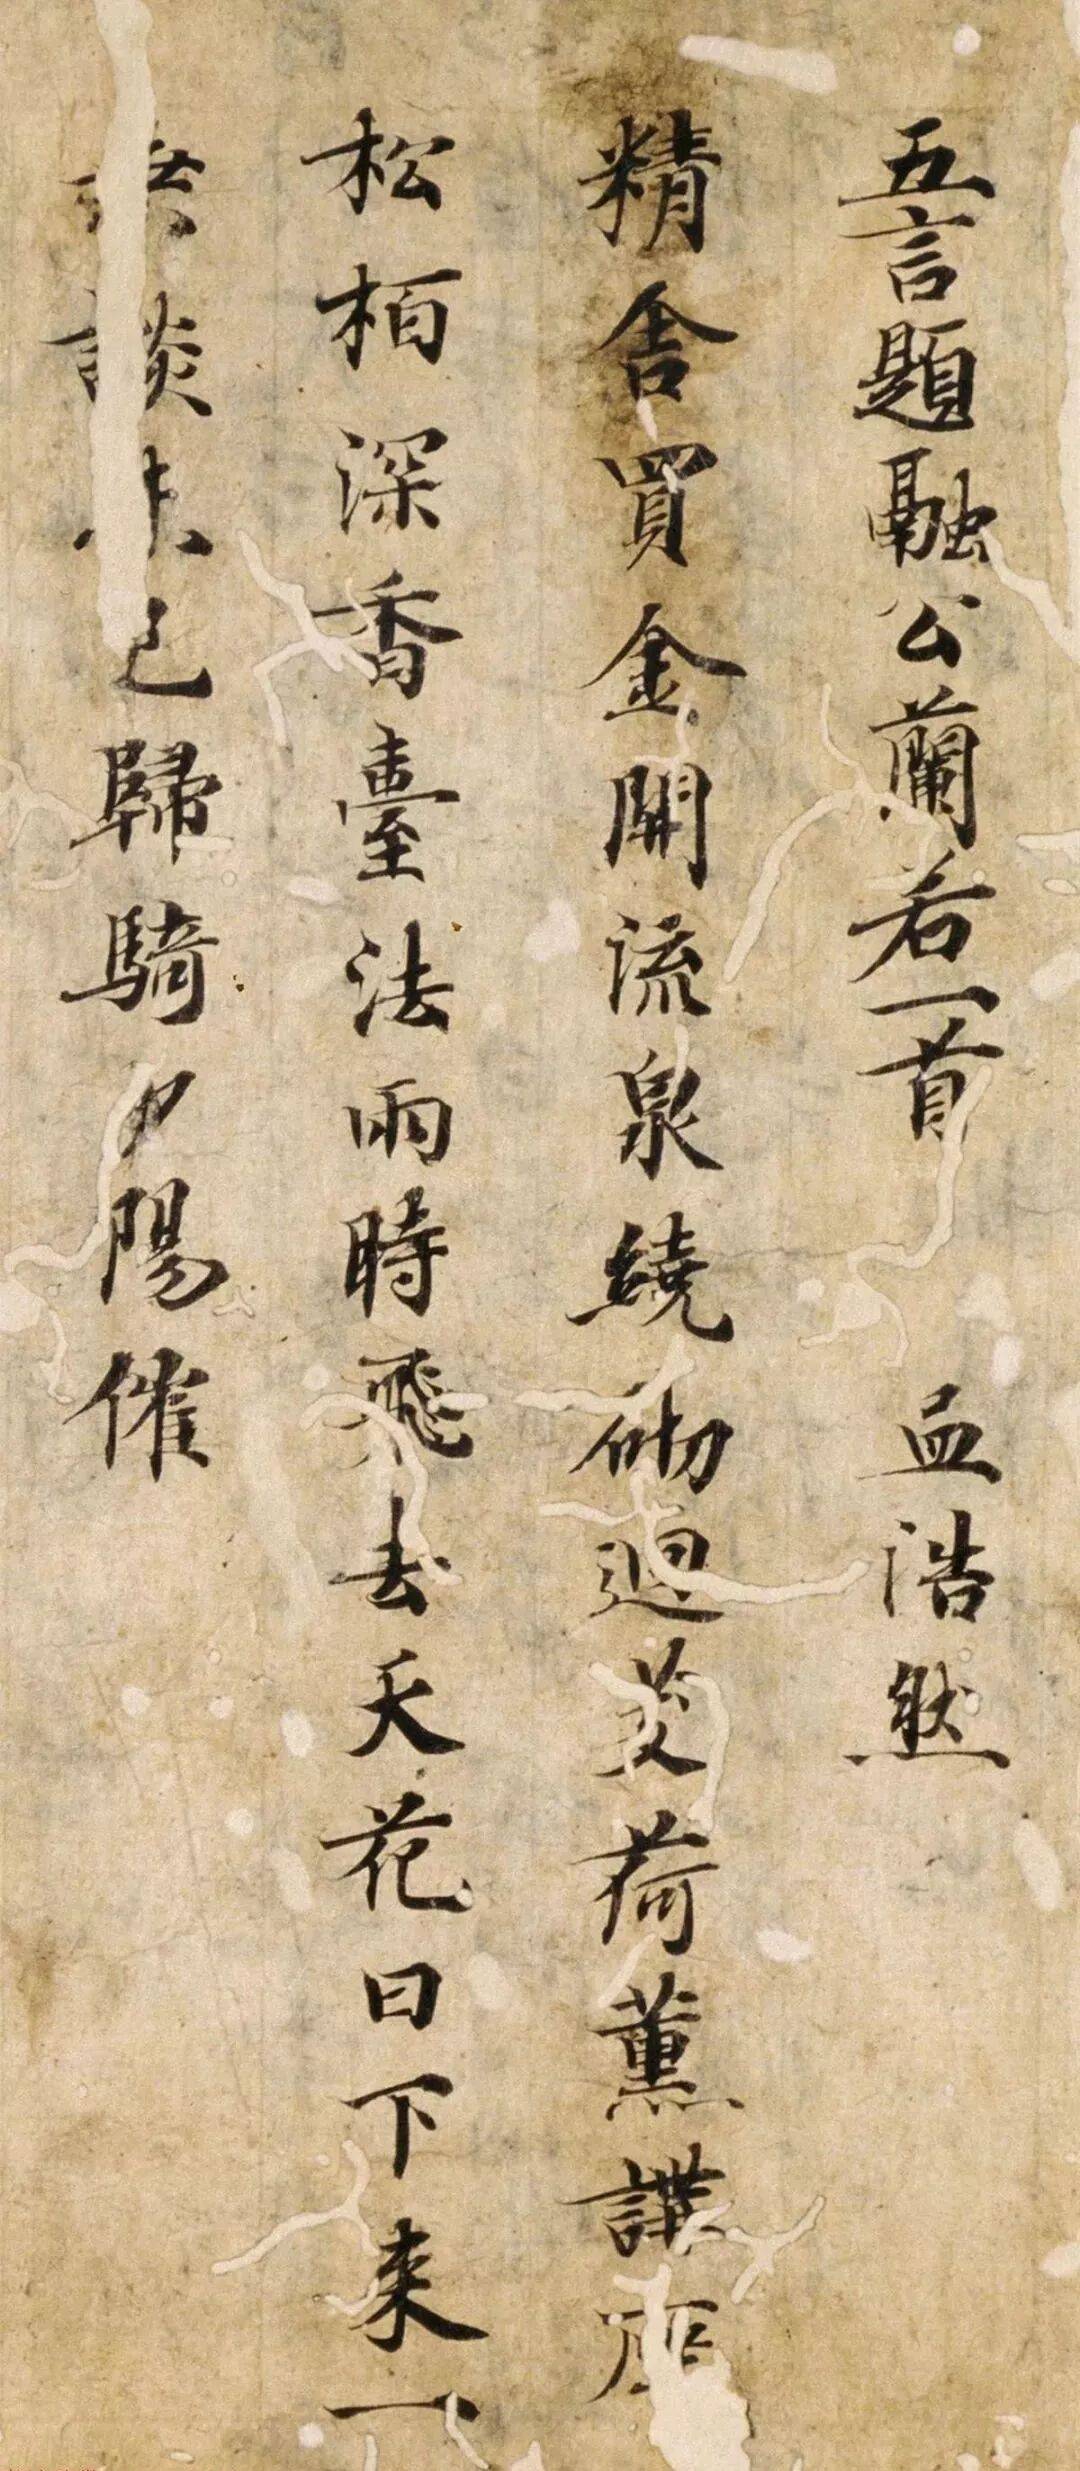 五言題融公蘭若一首 孟浩然
精舍買金開流泉繞砌迴芰荷薰講座
松柏深香臺法雨時飛去天花日下來一
談未已歸騎夕陽催